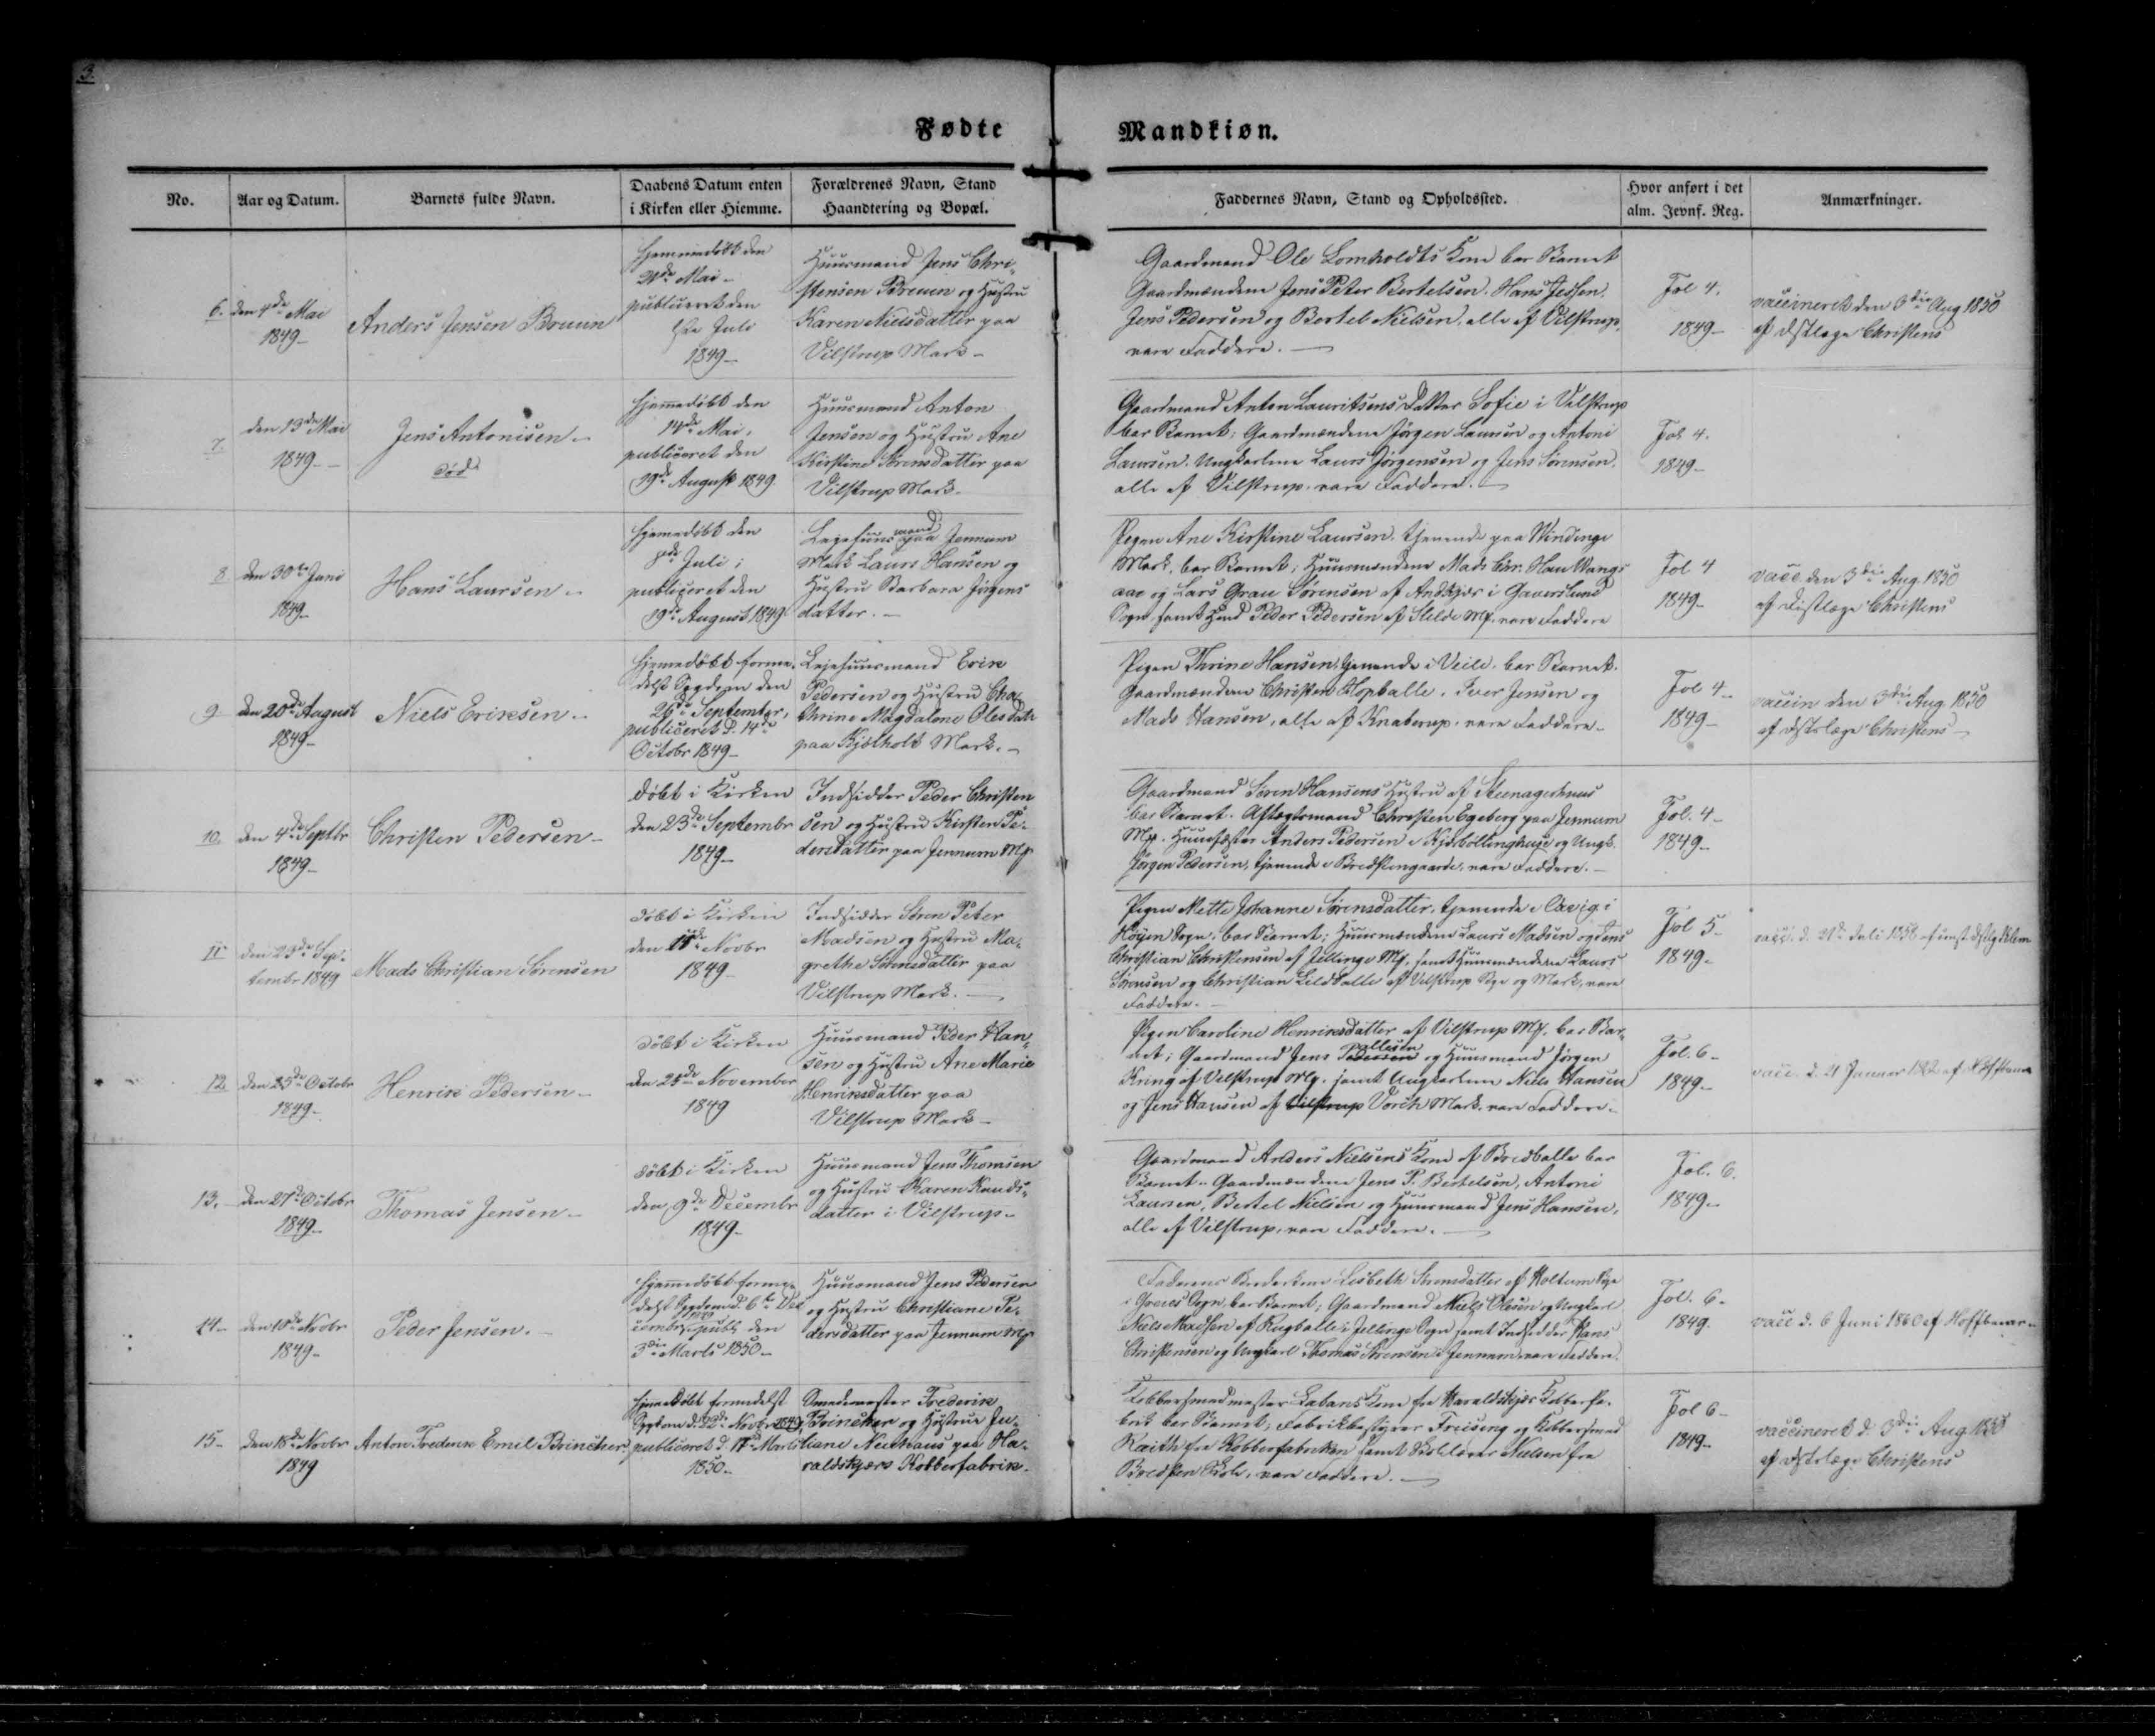 3.
Fødte Mandkiøn.
No.
Aar og Datum.
Barnets fulde Navn.
Daabens Datum enten
i Kirken eller Hiemme.
Forældrenes Navn, Stand
Haandtering og Bopæl.
Faddernes Navn, Stand og Opholdssted.
Hvor anført i det
alm. Jevnf. Reg.
Anmærkninger.
6.
den 4de Mai
1849
Anders Jensen Bruun
hjemmedöbt den
Mai
publiceret den
Juli
1849
Huusmand Jens Chri-
stensen Bruun og Hustru
Karen Nielsdatter paa
Vilstrup Mark
Gaardmand Ole Lomholdts Kone bar Barnet
Gaardmændene Jens Peter Bertelsen, Hans Jessen,
Jens Pedersen og Bertel Nielsen, alle af Vilstrup,
vare Faddere.
Fol 4.
1849
vaccineret den 3die Aug 1850
af Christens
7.
den 13de Mai
1849
Jens Antonisen
död
hjemmedöbt den
14de Mai,
publiceret den
19de August 1849
Huusmand Anton
Jensen og Hustru Ane
Kirstine Sörensdatter paa
Vilstrup Mark
Gaardmand Anton Lauritsens Datter Sofie i Vilstrup
bar Barnet; Gaardmændene Jörgen Laursen og Antoni
Laursen, Ungkarlene Laurs Jörgensen og Jens Sörensen,
alle af Vilstrup, vare Faddere.
Fol 4.
1849
8
den 30te Juni
1849
Hans Laursen
hjemmedöbt den
Juli;
publiceret den
19de August 1849
Lejehuusmand paa Jennum
Mark Laurs Hansen og
Hustru Barbara Jörgens
datter.
Pigen Ane Kirstine Laursen, tjenende paa Windinge
Mark, bar Barnet; Huusmændene Mads Chr. Hau Wangs
aae og Lars Grau Sörensen af Andkjær i Gaverslund
Sogn, samt Peder Pedersen af Mk. vare Faddere
Fol 4
1849
vacc. den 3die Aug. 1850
af Distlæge Christens
9
den 20de August
1849
Niels Eriksen
hjemmedöbt forme-
delst Sygdom den
26de September,
publiceret d. 14de
Octobr 1849
Lejehuusmand Erik
Pedersen og Hustru Cha-
thrine Magdalene Olesdatr
paa Kjölholt Mark.
Pigen Thrine Hansen, tjenende i Veile, bar Barnet.
Gaardmændene Christen Hopballe, Iver Jensen og
Mads Hansen, alle af Knabrup, vare Faddere
Fol 4
1849
vaccin den 3die Aug. 1850
af Christens
10.
den 4de Septbr
1849
Christen Pedersen
Döbt i Kirken
den 23de Septembr
1849
Indsidder Peder Christen
sen og Hustru Kirsten Pe-
dersdatter paa Jennum Mk
Gaardmand Sören Hansens Hustru af Steenagerhuus
bar Barnet. Aftægtsmand Christen Egeberg paa Jennum
Mk. Huusfæster Anders Pedersen i og Ungk.
Jörgen Pedersen, tjenende i Bredstengaarde, vare Faddere.
Fol. 4
1849
11
den 23de Sep-
tembr 1849
Mads Christian Sörensen
döbt i Kirken
den Novbr
1849
Indsidder Sören Peter
Madsen og Hustru Ma-
grethe Sörensdatter paa
Vilstrup Mark.
Pigen Mette Johanne Sörensdatter, tjenende i i
Höyen Sogn, bar Barnet; Huusmændene Laurs Madsen og Jens
Christian Christensen af Jellinge Mk. samt Huusmændene Laurs
Sörensen og Christian Lildballe af Vilstrup Bye og Mark, vare
Faddere.
Fol 5
1849
vacc. d. 21de Juli
12.
den 25de Octobr
1849
Henrik Pedersen
döbt i Kirken
den 25de November
1849
Huusmand Peder Han-
sen og Hustru Ane Marie
Henriksdatter paa
Vilstrup Mark
Pigen Caroline Henriksdatter af Vilstrup Mk. bar Bar-
net; Gaardmand Jens Pallesen og Huusmand Jörgen
Kring af Vilstrup Mk. samt Ungkarlene Niels Hansen
og Jens Hansen af Vilstrup Vorck Mark, vare Faddere
Fol. 6
1849
vacc. d. 21 Januar af
13.
den 27de Octobr
1849
Thomas Jensen
döbt i Kirken
den 9de Decembr
1849
Huusmand Jens Thomsen
og Hustru Karen Knuds-
datter i Vilstrup
Gaardmand Anders Nielsens Kone af Bredballe bar
Barnet. Gaardmændene Jens P. Bertelsen, Antoni
Laursen, Bertel Nielsen og Huusmand Jens Hansen,
alle af Vilstrup, vare Faddere.
Fol. 6.
1849
14
den 10de Novbr
1849
Peder Jensen.
hjemmedöbt forme-
delst Sygdom d. 6te De-
cembr 1849, publ. den
3die Marts 1850
Huusmand Jens Pedersen
og Hustru Christiane Pe-
dersdatter paa Jennum Mk
Faderens Lisbeth Sörensdatter af Holtum Bye
i Greies Sogn, bar Barnet; Gaardmand Niels Olesen og Ungkarl
Niels Madsen af Rugballe i Jellinge Sogn samt Indsidder Hans
Christensen og Ungkarl Thomas Sörensen i Jennum, vare Faddere.
Fol. 6
1849.
vacc d. 6 Juni 1860 af Hoffbauer
15
den 18de Novbr
1849
Anton Frederik Emil Brincker
hjemmedöbt formedelst
Sygdom d. 23de Novbr 1849,
publiceret d. 17de Marts
1850
Smedemester Frederik
Brincker og Hustrue Ju-
liane Neuhaus paa Ha-
raldskjærs Kobberfabrik
Kobbersmedmester Labans Kone fra Haraldskjær Kobberfa-
brik bar Barnet; Fabrikbestyrer Freiseng og Kobbersmed
Raith fra Kobberfabrikken samt Skolelærer Nielsen fra
Bredsten Skole, vare Faddere.
Fol 6
1849
vaccineret d. 3die Aug 1850
af Christens